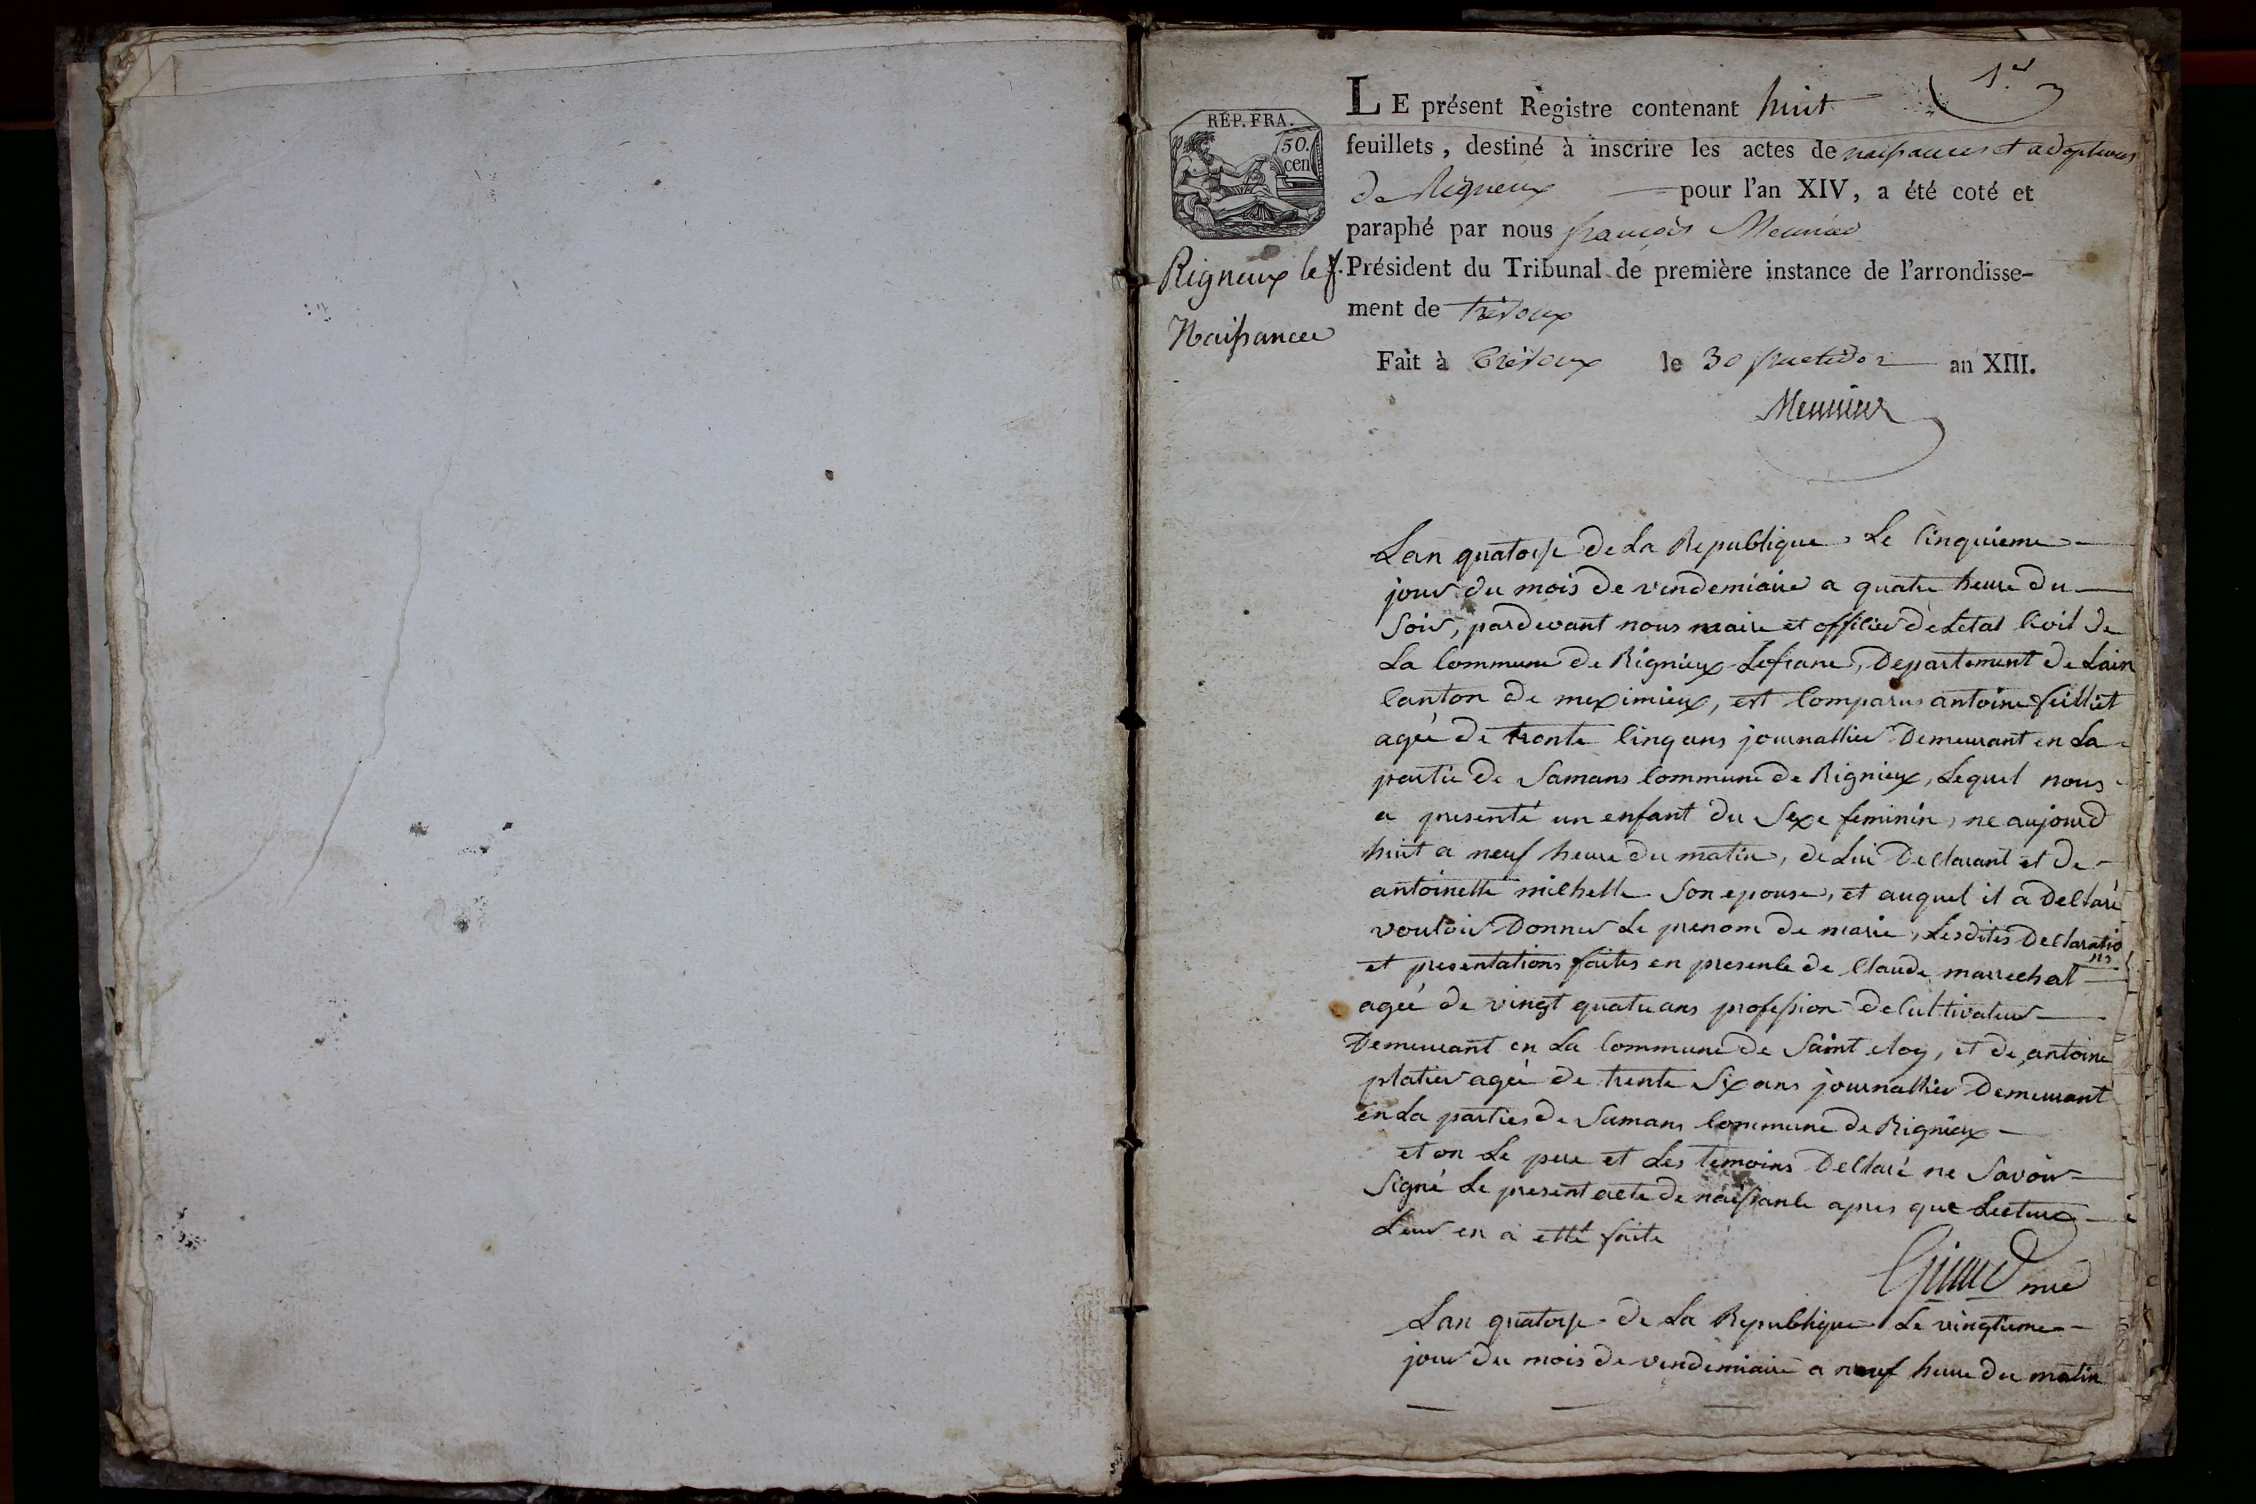 1er
LE présent Registre contenant huit
feuillets, destiné à inscrire les actes de naissances et adoptions
de Rigneux pour l'an XIV, a été coté et
paraphé par nous françois Meunier
Président du Tribunal de première instance de l'arrondisse-
ment de trévoux
Fait à trévoux le 30 fructidor an XIII.
Meunier
REP. FRA.
50.
cen
Rigneux le f.
Naissance
Lan quatorze de La Republique, Le Cinquieme
jour du mois de vendemiaire a quatre heure du
Soir, pardevant nous maire et officier de Letat Civil de
La Commune de Rignieux Lefranc, Departement de Lain
Canton de meximieux, est Comparus antoine feilliet
ageé de trente Cinq ans journallier Demeurant en La
partie de Samans Commune de Rignieux, Lequel nous
a presenté un enfant du Sexe feminin, ne aujourd
huit a neuf heure du matin, de Lui Declarant et de
antoinette milhelle Son epouse, et auquel il a Declaré
vouloir Donner Le prenom de marie, Lesdites Declaratio
ns
et presentations faites en presence de Claude marrechal
ageé de vingt quatre ans profession de Cultivateur
Demeurant en La Commune de Saint eloy, et de antoine
platier ageé de trente Six ans journallier Demeurant
en La parties de Samans Commune de Rignieux
et on Le pere et Les temoins Declaré ne Savoir
Signé Le present acte de naissance apres que Lecture
Leur en a etté faite
mre
Lan quatorze de La Republique Le vingtieme
jour du mois de vendemiaire a neuf heure du matin